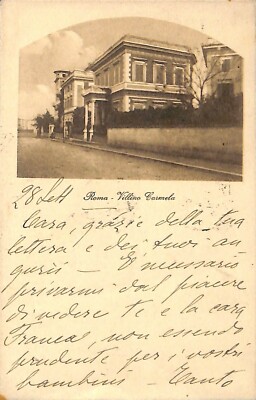 Roma - Villino Carmela
28 Sett
Cara, grazie della tua
lettera e dei tuoi au
guri - È necessario
privarmi dal piacere
di vedere te e la cara
Franca, non essendo
prudente per i vostri
bambini - Tanto